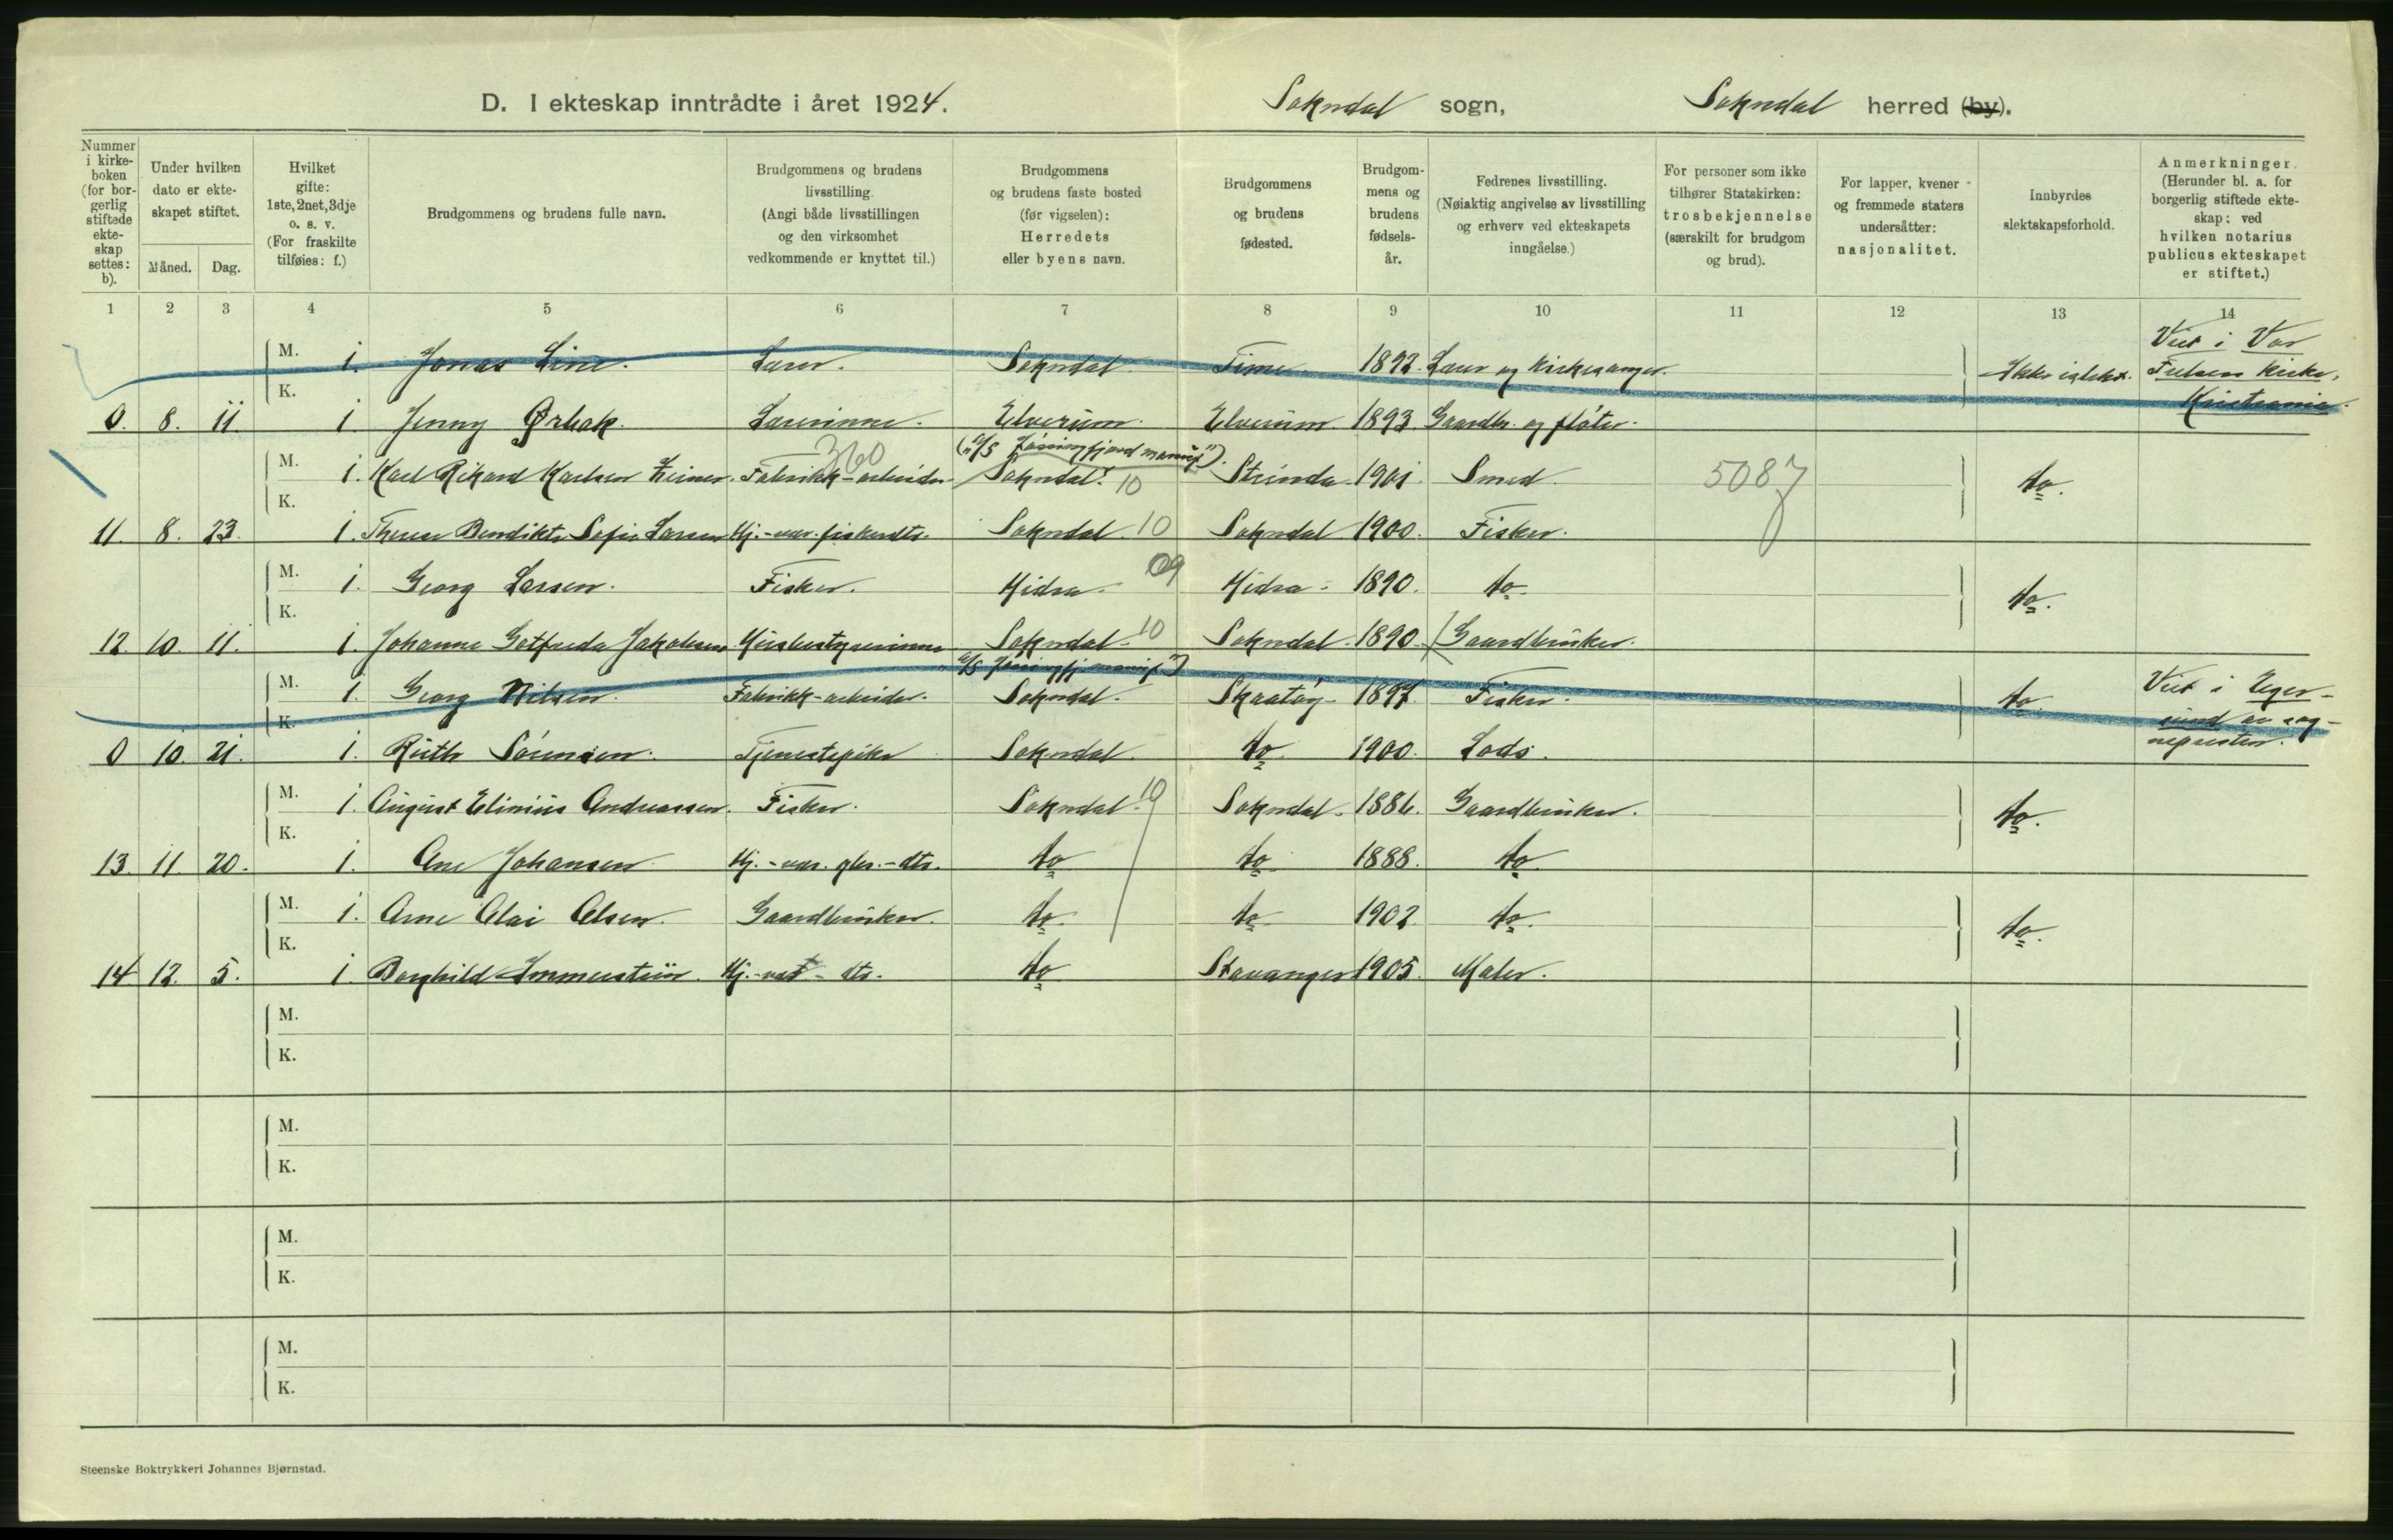 D. I ekteskap inntrådte i året 1924. Sokndal sogn, Sokndal herred (by).
Nummer i kirke-boken (for bor-gerlig stiftede ekte-skap settes: b).
Under hvilken dato er ekte-skapet stiftet.
Måned. Dag.
Hvilket gifte: 1ste, 2net, 3dje o. s. v. (For fraskilte tilføies: f.)
Brudgommens og brudens fulle navn.
Brudgommens og brudens livsstilling. (Angi både livsstillingen og den virksomhet vedkommende er knyttet til.)
Brudgommens og brudens faste bosted (før vigselen): Herredets eller byens navn.
Brudgommens og brudens fødested.
Brudgom-mens og brudens fødsels-år.
Fedrenes livsstilling. (Nøiaktig angivelse av livsstilling og erhverv ved ekteskapets inngåelse.)
For personer som ikke tilhører Statskirken: trosbekjennelse (særskilt for brudgom og brud).
For lapper, kvener og fremmede staters undersåtter: nasjonalitet.
Innbyrdes slektskapsforhold.
Anmerkninger. (Herunder bl. a. for borgerlig stiftede ekte-skap: ved hvilken notarius publicus ekteskapet er stiftet.)
1 2 3 4 5 6 7 8 9 10 11 12 13 14
M. 1. Jonas Line. Lærer. Sokndal. Time 1892. Lærer og kirkesanger. Ikke i slekt. Viet i Vor Frelsers kirke, Kristiania.
K. 0. 8. 11. 1. Jenny Ørbak. Lærerinne. Elverum. Elverum 1893. Gaardbr. og fløter.
("A/S Jøssingfjord manuf").
M. 1. Karl Rikard Karlsen Zeiner. Fabrikk-arbeider. 360 Sokndal. 10 Strinda 1901. Smed. 5087 do.
K. 11. 8. 23. 1. Therese Bendikte Sofie Larsen Hj.-vær. fiskerdtr. Sokndal. 10 Sokndal 1900. Fisker.
M. 1. Georg Larsen. Fisker. Hidra. 09 Hidra 1890. do. do.
K. 12. 10. 11. 1. Johanne Gotfreda Jakobsen Husbestyrerinne Sokndal 10 Sokndal 1890. Gaardbruker.
"A/S Jøssingfj. manuf")
M. 1. Georg Nilsen. Fabrikk-arbeider. Sokndal. Skaatøy 1897. Fisker. do. Viet i Eger-sund av sog-nepresten.
K. 0 10. 21. 1. Ruth Sørensen. Tjenestepike Sokndal. do. 1900. Lods.
M. 1. August Elinius Andreassen. Fisker. Sokndal. 10 Sokndal. 1886. Gaardbruker. do.
K. 13. 11. 20. 1. Ane Johansen Hj.-vær. gbr.-dtr. do do 1888. do
M. 1. Arne Olai Olsen. Gaardbruker. do. do 1902. do. do.
K. 14 12. 5. 1. Borghild Immerstein. Hj.-vær-dtr. do Stavanger 1905. Maler.
M.
K.
M.
K.
M.
K.
M.
K.
Steenske Boktrykkeri Johannes Bjørnstad.